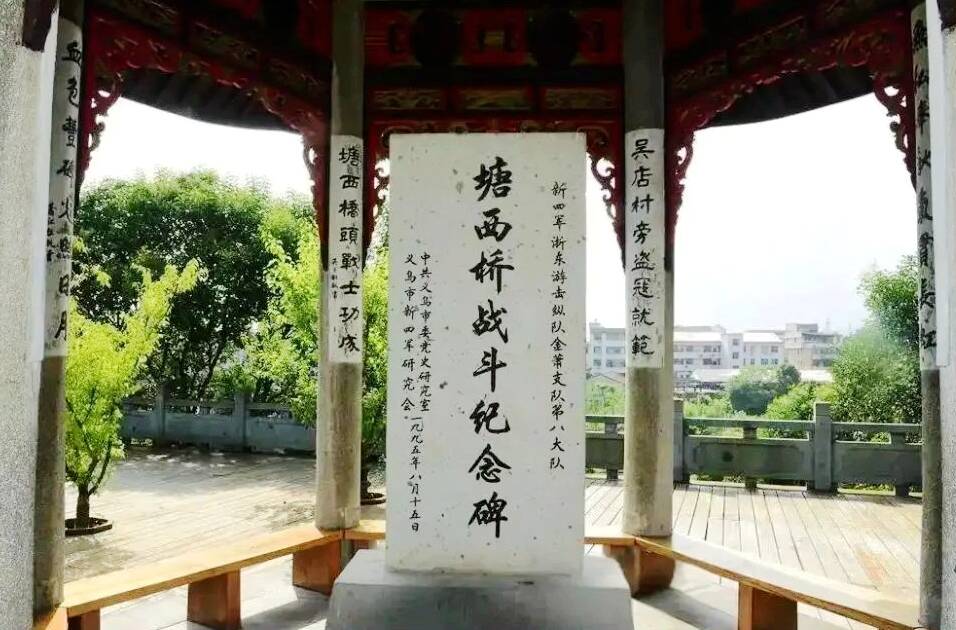 氣貫長江
吴店村旁盗寇就範
新四军浙东游击纵队金萧支队第八大队
塘西桥战斗纪念碑
中共义乌市委党史研究室
义乌市新四军研究会
一九九五年八月十五日
塘西橋頭戰士功成
血色豐碑日月